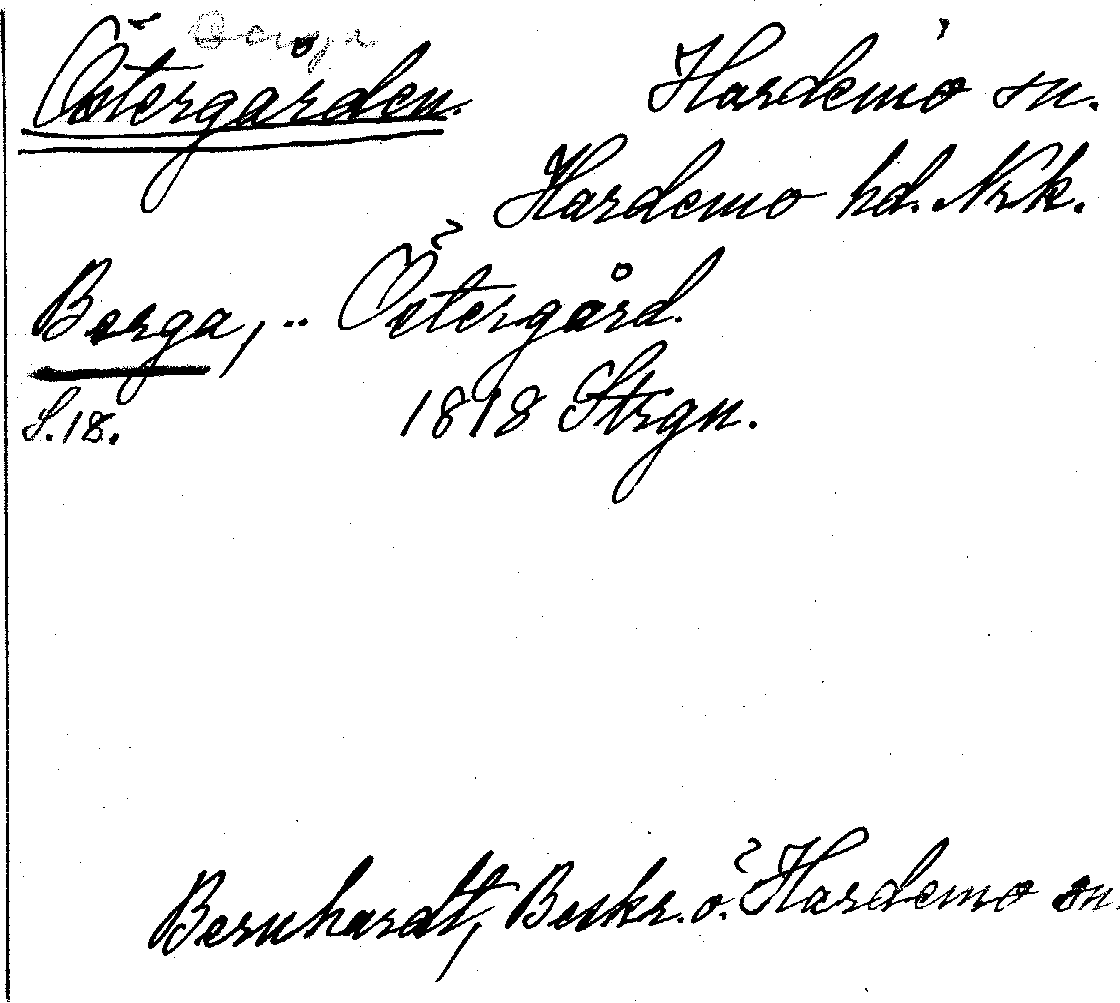 Borga
Östergården. Hardemo sn.
Hardemo hd. Nrk.
Borga, .. Östergård.
S. 18. 1818 Strgn.
Bernhardt, Beskr. ö. Hardemo sn.